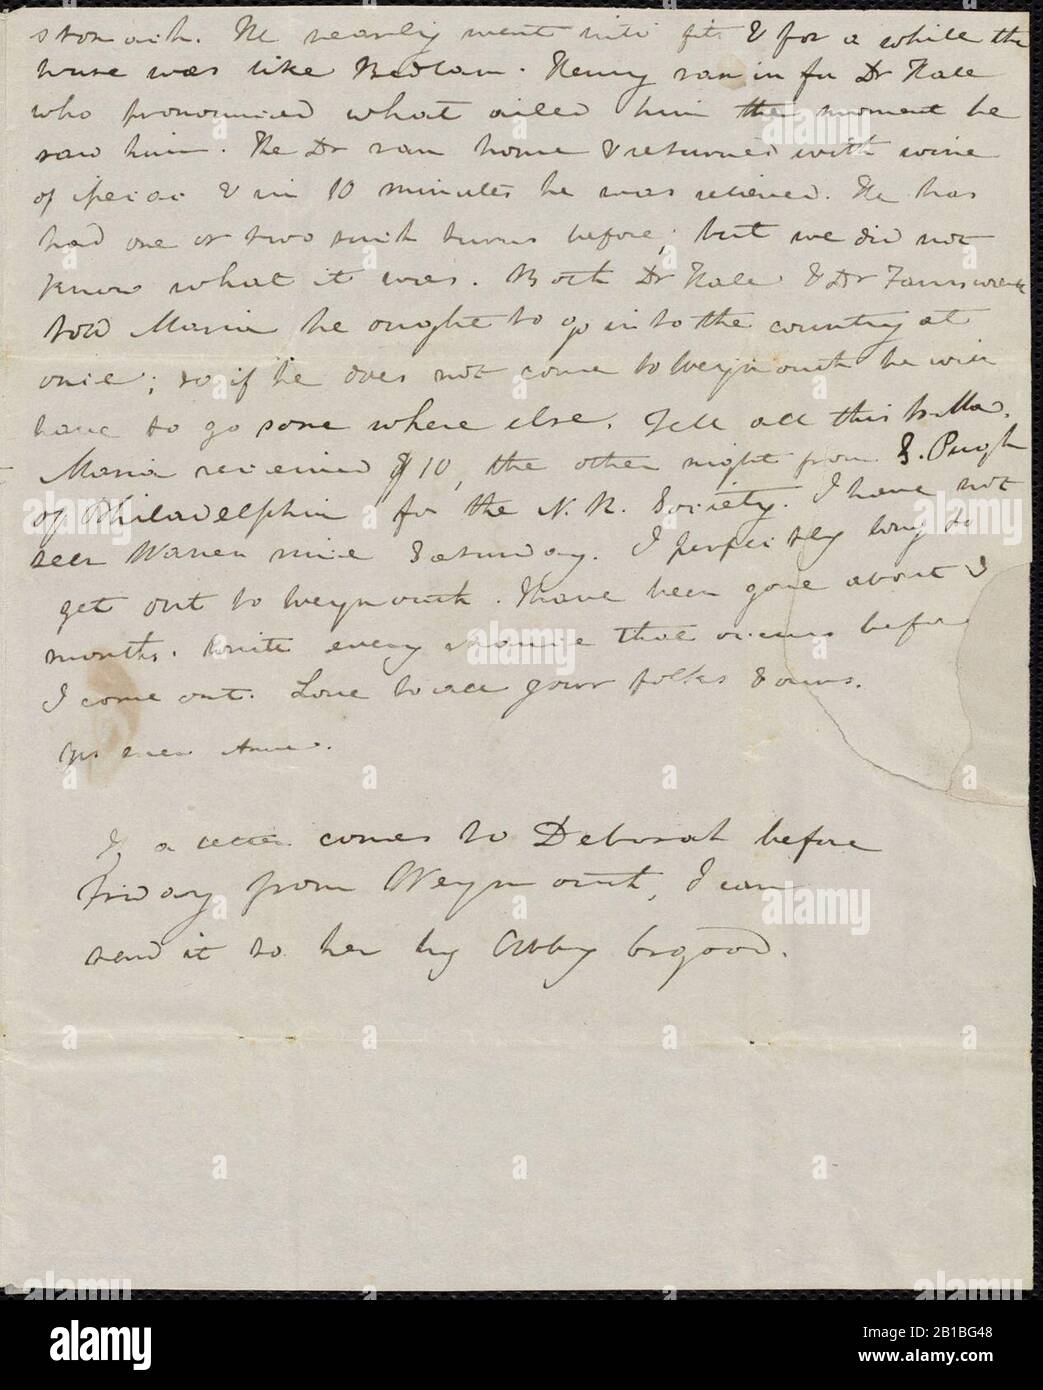 stomach. He nearly went into fits & for a while the
house was like Bedlam. Henry ran in for Dr Hale
who pronounced what ailed him the moment he
saw him. The Dr ran home & returned with wine
of ipecac & in 10 minutes he was relieved. He has
had one or two such turns before, but we did not
know what it was. Both Dr Hale & Dr Farnsworth
told Maria he ought to go into the country at
once; so if he does not come to Weymouth he will
have to go some where else. Tell all this to Ma.
Maria received $10, the other night from S. Pugh
of Philadelphia for the N. R. Society. I have not
seen Warren since Saturday. I perfectly long to
get out to Weymouth. I have been gone about 2
months. Write every chance that occurs before
I come out. Love to all your folks & ours.
Yrs ever Anne.
If a letter comes to Deborah before
Friday from Weymouth, I can
send it to her by Abby Osgood.
alamy
Image ID: 2B1BG48
www.alamy.com